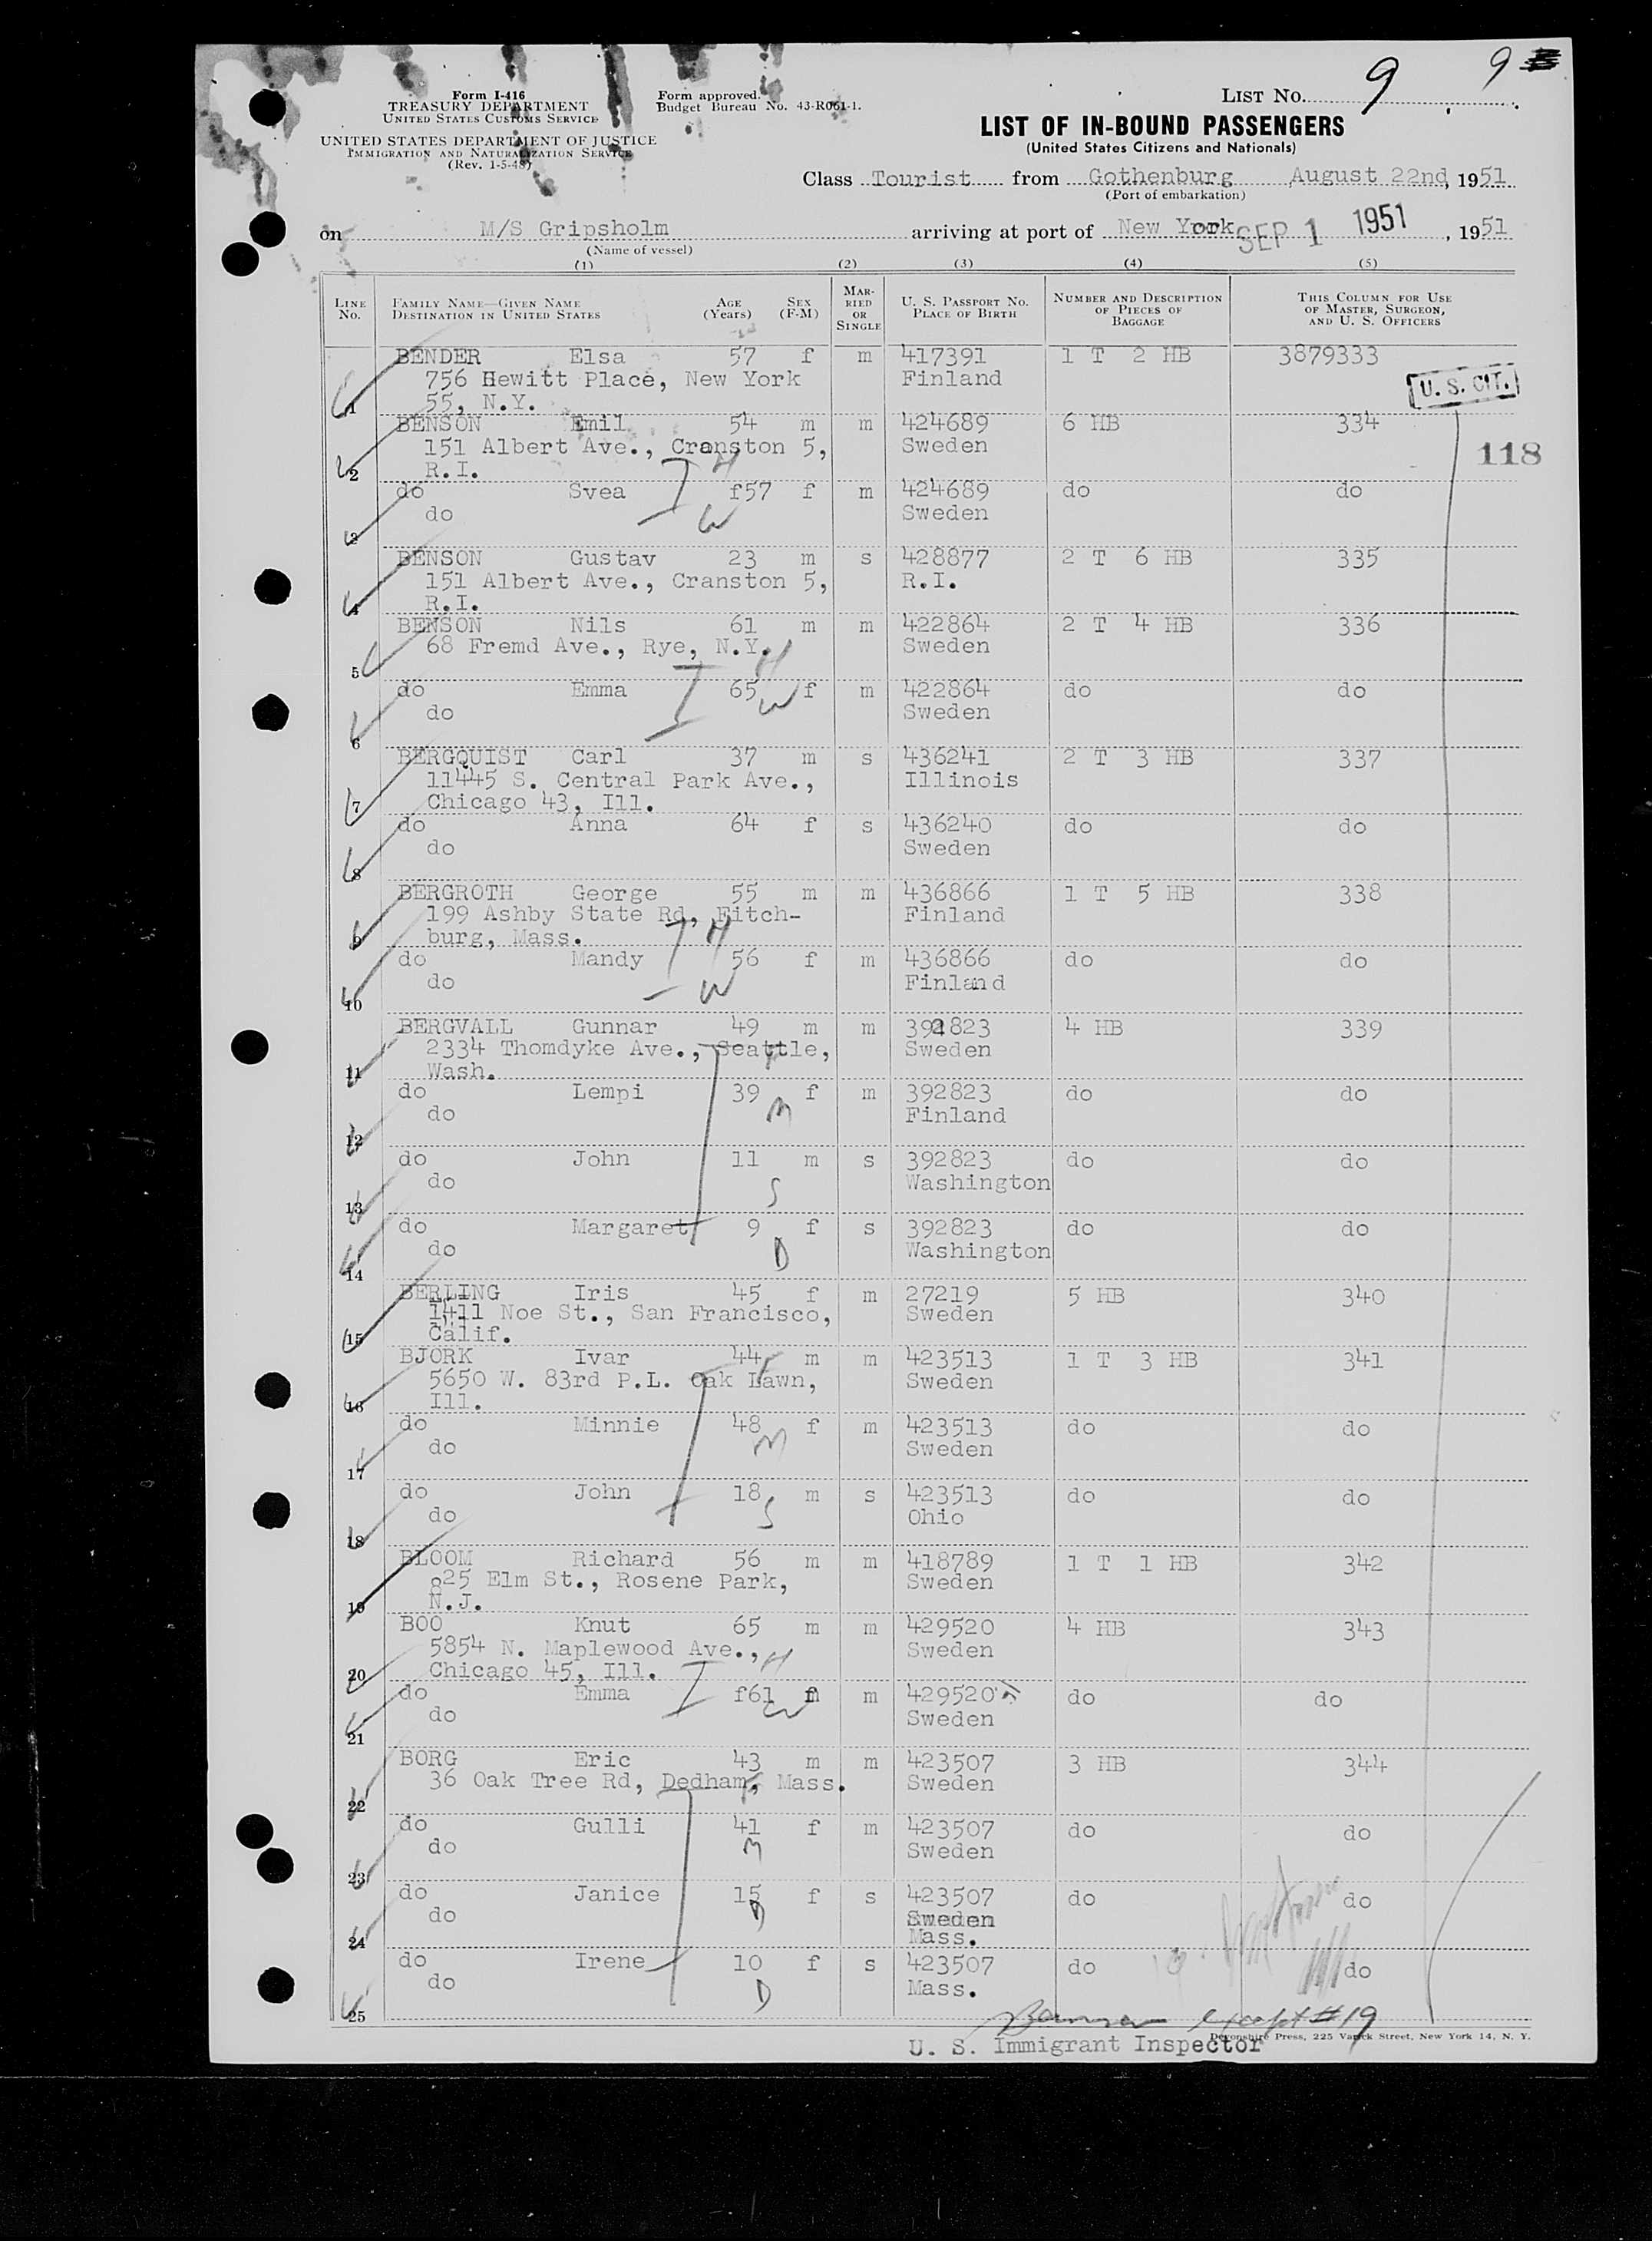 9 9
Form I-416
TREASURY DEPARTMENT
UNITED STATES CUSTOMS SERVICE
UNITED STATES DEPARTMENT OF JUSTICE
IMMIGRATION AND NATURALIZATION SERVICE
(Rev. 1-5-48)
Form approved.
Budget Bureau No. 43-R061-1.
LIST No.
LIST OF IN-BOUND PASSENGERS
(United States Citizens and Nationals)
Class Tourist from Gothenburg August 22nd, 1951
(Port of embarkation)
on M/S Gripsholm arriving at port of New York SEP 1 1951, 1951
(Name of vessel)
(1) (2) (3) (4) (5)
LINE NO. FAMILY NAME—GIVEN NAME DESTINATION IN UNITED STATES AGE (Years) SEX (F-M) MARRIED OR SINGLE U. S. PASSPORT NO. PLACE OF BIRTH NUMBER AND DESCRIPTION OF PIECES OF BAGGAGE THIS COLUMN FOR USE OF MASTER, SURGEON, AND U. S. OFFICERS
BENDER Elsa 57 f m 417391 1 T 2 HB 3879333
756 Hewitt Place, New York Finland U. S. CIT.
1 55, N.Y.
BENSON Emil 54 m m 424689 6 HB 334
151 Albert Ave., Cranston 5, Sweden 118
2 R.I. H
do Svea f57 f m 424689 do do
do W Sweden
3
BENSON Gustav 23 m s 428877 2 T 6 HB 335
151 Albert Ave., Cranston 5, R.I.
4 R.I.
BENSON Nils 61 m m 422864 2 T 4 HB 336
68 Fremd Ave., Rye, N.Y. H Sweden
5
do Emma 65 W f m 422864 do do
do Sweden
6
BERGQUIST Carl 37 m s 436241 2 T 3 HB 337
11445 S. Central Park Ave., Illinois
7 Chicago 43, Ill.
do Anna 64 f s 436240 do do
do Sweden
8
BERGROTH George 55 m m 436866 1 T 5 HB 338
199 Ashby State Rd, Fitch- Finland
9 burg, Mass. H
do Mandy 56 f m 436866 do do
do W Finland
10
BERGVALL Gunnar 49 m m 392823 4 HB 339
2334 Thomdyke Ave., Seattle, Sweden
11 Wash.
do Lempi 39 f m 392823 do do
do M Finland
12
do John 11 m s 392823 do do
do S Washington
13
do Margaret 9 f s 392823 do do
do D Washington
14
BERLING Iris 45 f m 27219 5 HB 340
1411 Noe St., San Francisco, Sweden
15 Calif.
BJORK Ivar 44 m m 423513 1 T 3 HB 341
5650 W. 83rd P.L. Oak Lawn, Sweden
16 Ill.
do Minnie 48 f m 423513 do do
do M Sweden
17
do John 18 m s 423513 do do
do S Ohio
18
BLOOM Richard 56 m m 418789 1 T 1 HB 342
825 Elm St., Rosene Park, Sweden
19 N.J.
BOO Knut 65 m m 429520 4 HB 343
5854 N. Maplewood Ave., H Sweden
20 Chicago 45, Ill.
do Emma f61 m 429520 do do
do W Sweden
21
BORG Eric 43 m m 423507 3 HB 344
36 Oak Tree Rd, Dedham, Mass. Sweden
22
do Gulli 41 f m 423507 do do
do M Sweden
23
do Janice 15 f s 423507 do do
do D Sweden
24 Mass.
do Irene 10 f s 423507 do do
do D Mass.
25
except #19
U. S. Immigrant Inspector
Devonshire Press, 225 Varick Street, New York 14, N. Y.